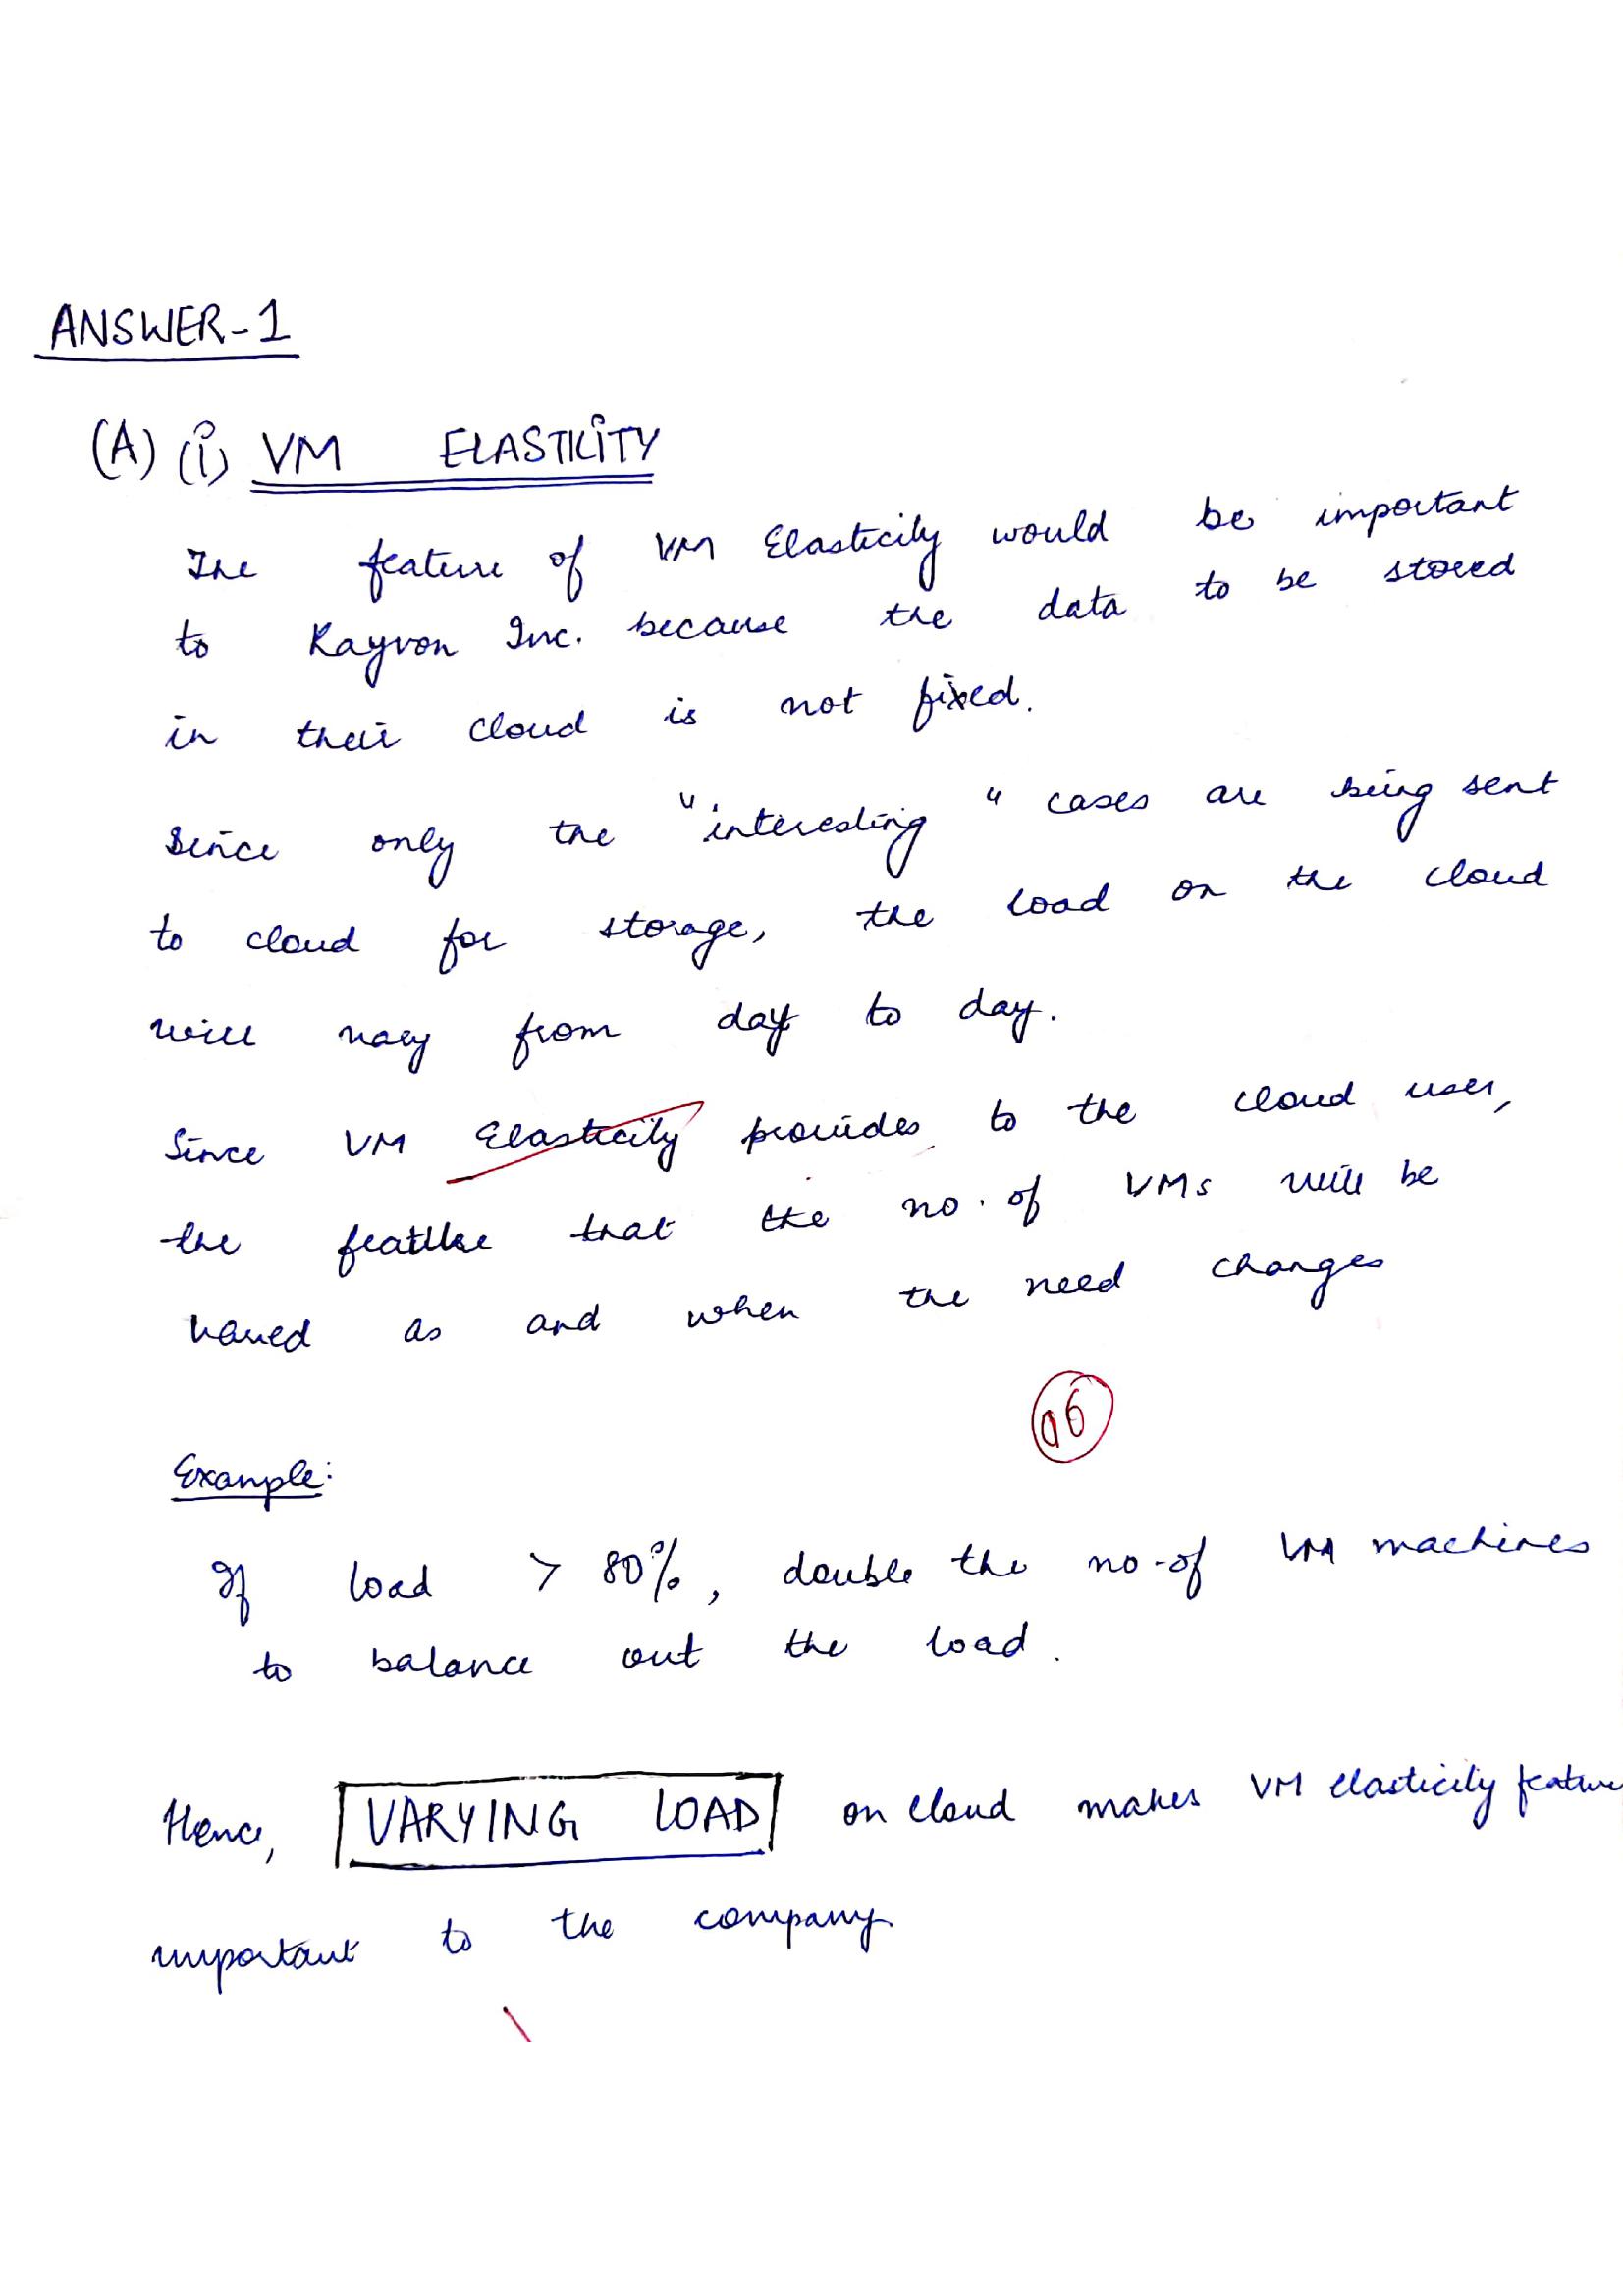 ANSWER-1
(A) (i) VM ELASTICITY
The feature of VM Elasticity would be important
to Rayvon Inc. because the data to be stored
in their cloud is not fixed.
Since only the "interesting" cases are being sent
to cloud for storage, the load on the cloud
will vary from day to day.
Since VM Elasticity provides to the cloud user,
the feature that the no. of VMs will be
varied as and when the need changes
06
Example:
If load > 80%, double the no-of VM machines
to balance out the load.
Hence, VARYING LOAD on cloud makes VM elasticity feature
important to the company